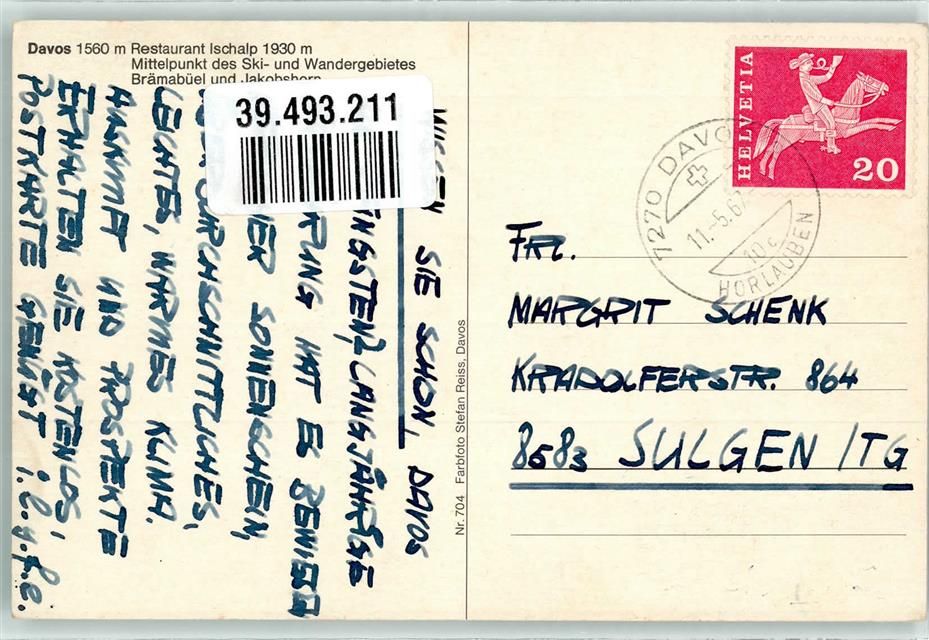 Davos 1560 m Restaurant Ischalp 1930 m
Mittelpunkt des Ski- und Wandergebietes
Brämabüel und Jakobshorn
39.493.211
WISSEN SIE SCHON, DAVOS
PFINGSTEN? LANGJÄHRIGE
HAT ES BEWIESEN
SONNENSCHEIN,
ÜBERDURCHSCHNITTLICHES,
LEICHTES, WARMES KLIMA.
AUSKUNFT UND PROSPEKTE
ERHALTEN SIE KOSTENLOS,
POSTKARTE GENÜGT
Nr. 704 Farbfoto Stefan Reiss, Davos
HELVETIA
20
7270 DAVOS
11.-5.67
10 c
HORLAUBEN
FRL.
MARGRIT SCHENK
KRADOLFERSTR. 864
8583 SULGEN / TG